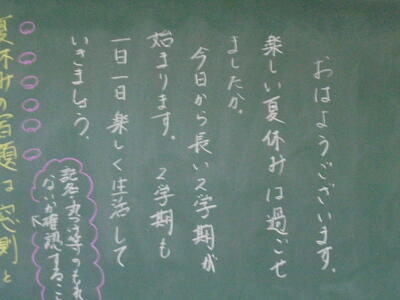 おはようございます。
楽しい夏休みは過ごせ
ましたか。
今日から長い2学期が
始まります。2学期も
一日一日楽しく生活して
いきましょう。
夏休みの宿題は 原則と
記名・丸つけ等のもれ
ないか確認するこ